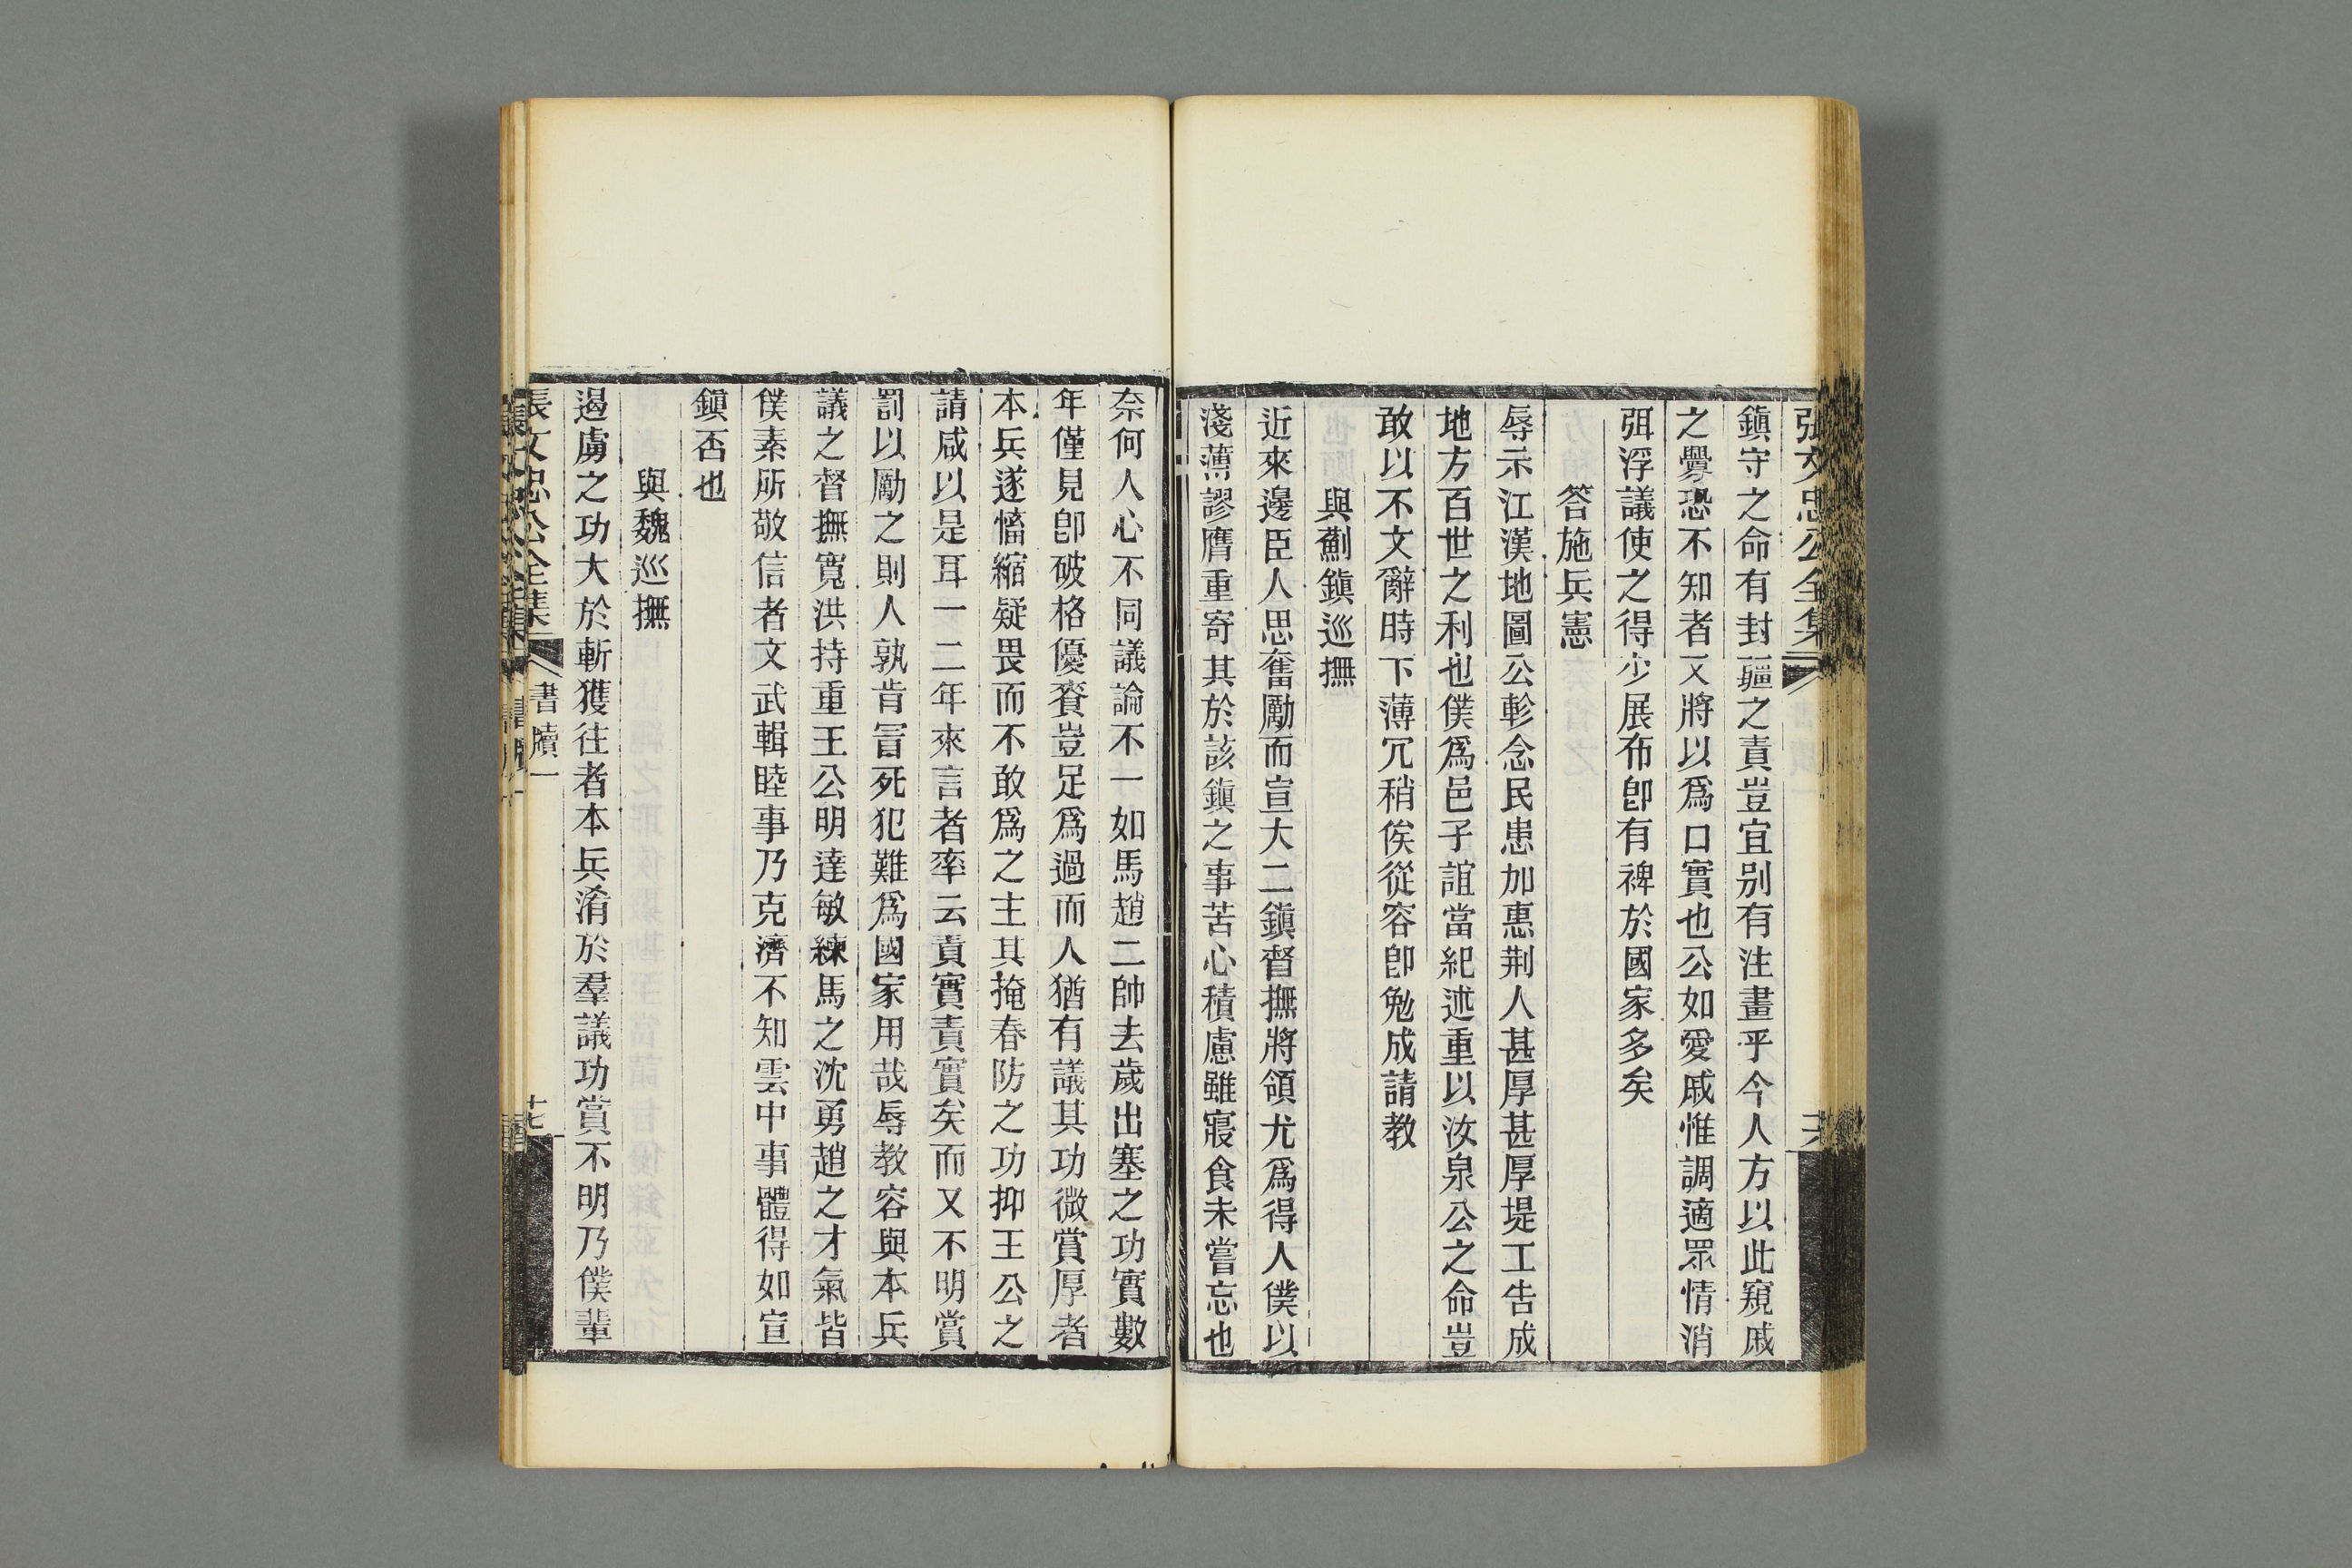 張文忠公全集
鎮守之命有封疆之責豈宜别有注畫乎今人方以此窺戚
之釁恐不知者又將以爲口實也公如愛戚惟調適眾情消
弭浮議使之得少展布卽有裨於國家多矣
答施兵憲
辱示江漢地圖公軫念民患加惠荆人甚厚甚厚堤工告成
地方百世之利也僕爲邑子誼當紀述重以汝泉公之命豈
敢以不文辭時下薄冗稍俟從容卽勉成請教
與薊鎮巡撫
近來邊臣人思奮勵而宣大二鎮督撫將領尤爲得人僕以
淺薄謬膺重寄其於該鎮之事苦心積慮雖寢食未嘗忘也
奈何人心不同議論不一如馬趙二帥去歲出塞之功實數
年僅見卽破格優賚豈足爲過而人猶有議其功微賞厚者
本兵遂慉縮疑畏而不敢爲之主其掩春防之功抑王公之
請咸以是耳一二年來言者率云責實責實矣而又不明賞
罰以勵之則人孰肯冒死犯難爲國家用哉辱教容與本兵
議之督撫寬洪持重王公明達敏練馬之沈勇趙之才氣皆
僕素所敬信者文武輯睦事乃克濟不知雲中事體得如宣
鎮否也
與魏巡撫
遏虜之功大於斬獲往者本兵淆於羣議功賞不明乃僕輩
張文忠公全集
書牘一
十七